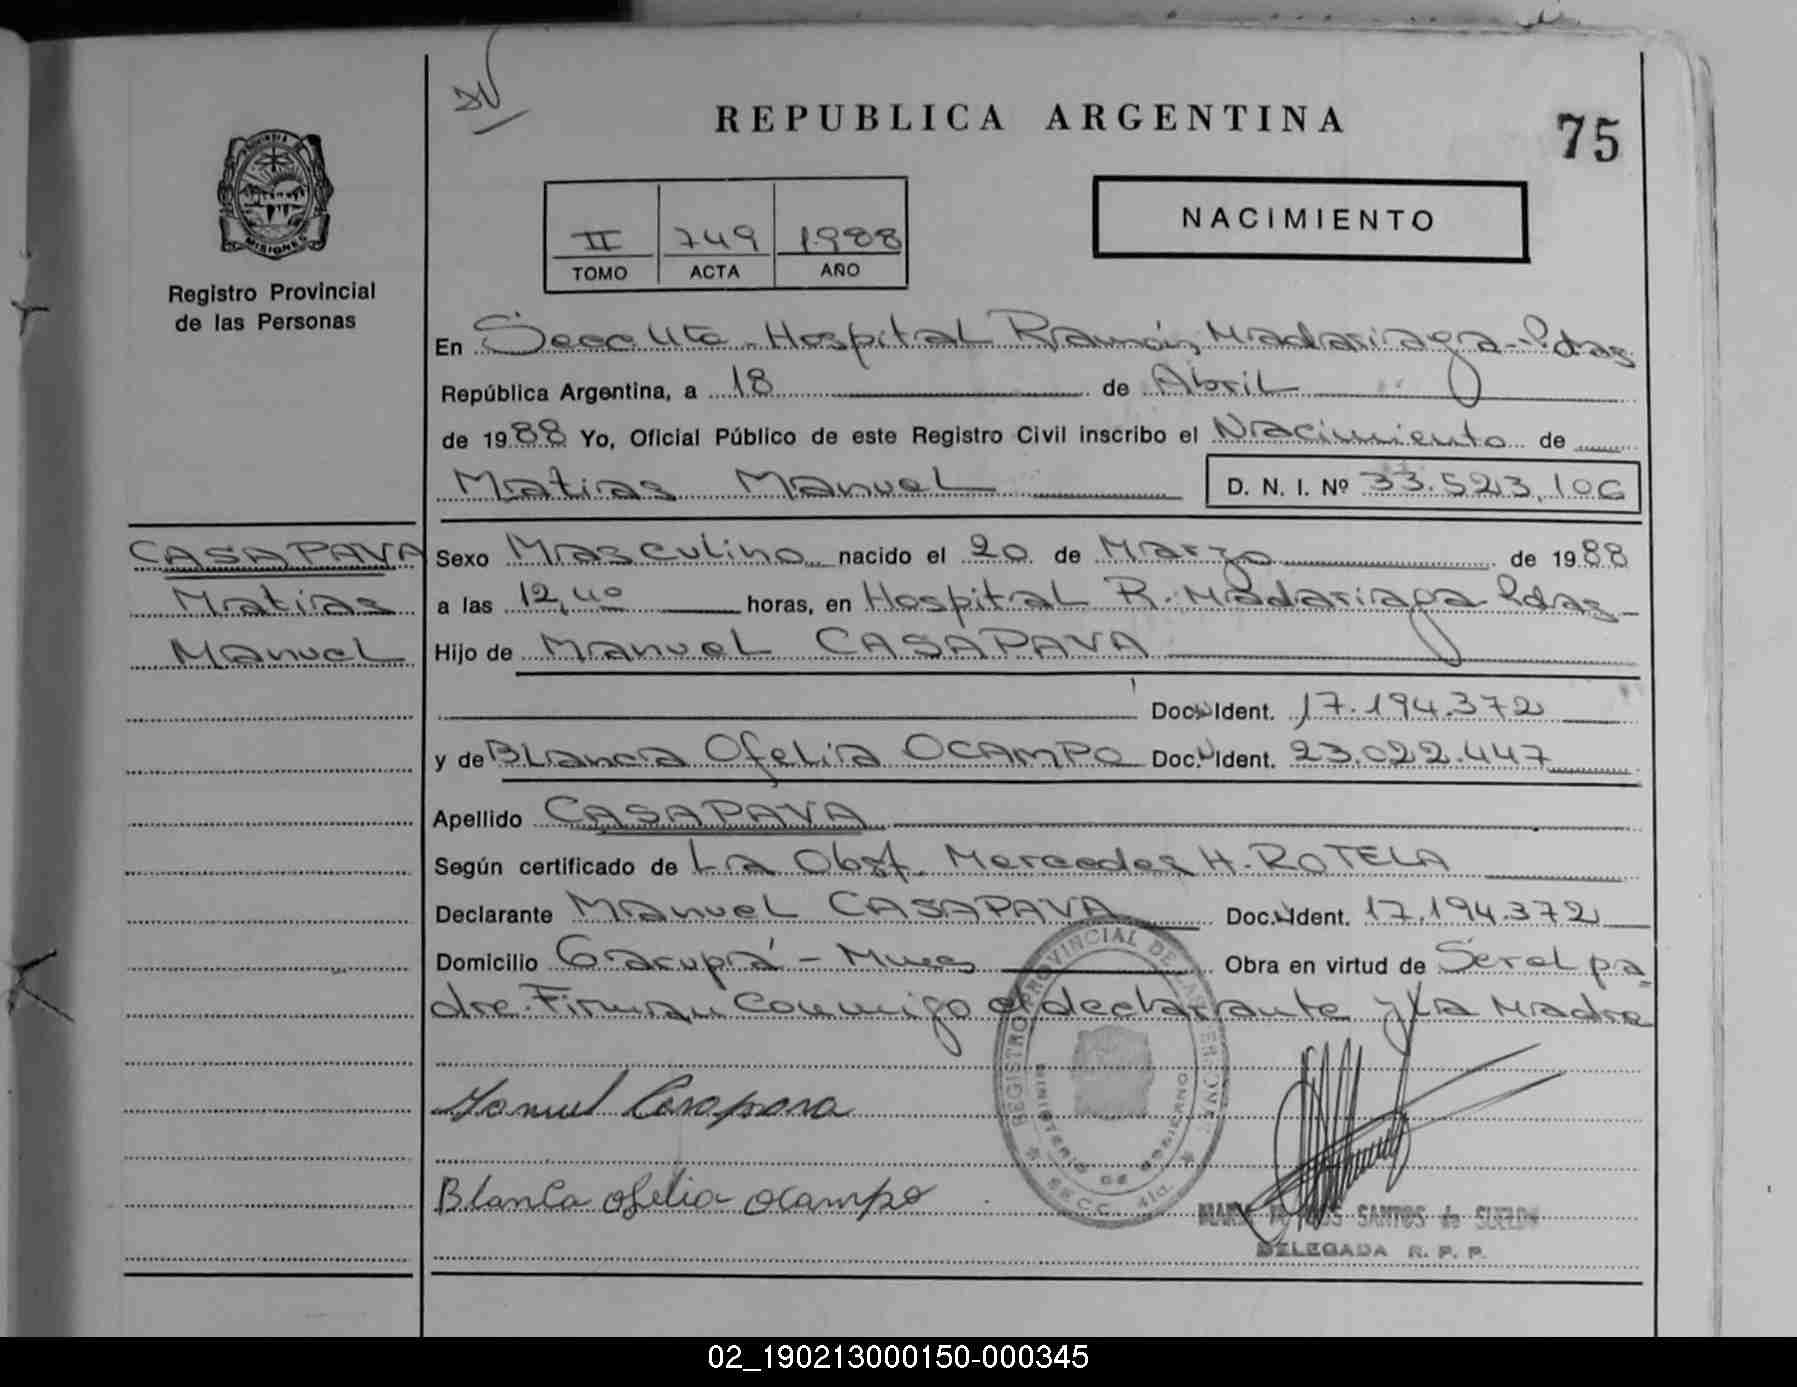 75
REPUBLICA ARGENTINA
NACIMIENTO
II 749 1988
TOMO ACTA AÑO
PROVINCIA DE
MISIONES
Registro Provincial
de las Personas
En Secc 4ta - Hospital Ramón Madariaga - Pdas
República Argentina, a 18 de Abril
de 1988 Yo, Oficial Público de este Registro Civil inscribo el Nacimiento de
Matias Manuel D. N. I. Nº 33.523.106
CASAPAVA
Matias
Manuel
Sexo Masculino nacido el 20 de Marzo de 1988
a las 12,40 horas, en Hospital R. Madariaga Pdas-
Hijo de Manuel CASAPAVA
Doc. Ident. 17.194.372
y de Blanca Ofelia OCAMPO Doc. Ident. 23.022.447
Apellido CASAPAVA
Según certificado de La Obst. Mercedes H. ROTELA
Declarante Manuel CASAPAVA Doc. Ident. 17.194.372
Domicilio Garupá - Mnes Obra en virtud de Ser el pa
dre. Firman Conmigo el declarante y La Madre
Manuel Casapava
Blanca Ofelia Ocampo
REGISTRO PROVINCIAL DE LAS PERSONAS
MINISTERIO DE GOBIERNO
SECC. 4ta.
SANTOS de
DELEGADA R. P. P.
02_190213000150-000345